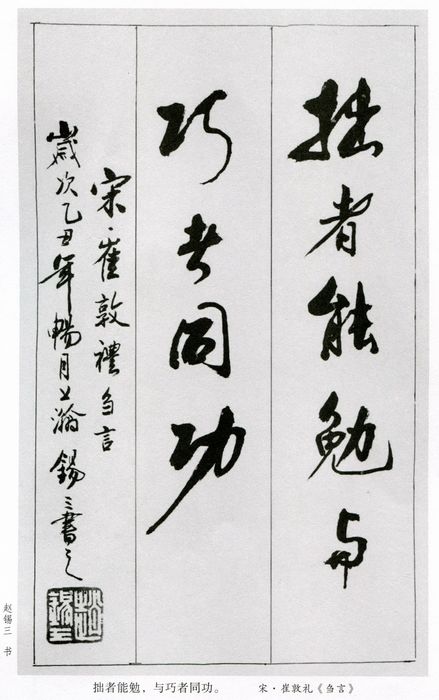 拙者能勉与
巧者同功
宋·崔敦禮芻言
歲次乙丑年暢月上瀚錫三書之
趙錫三
赵锡三 书
拙者能勉，与巧者同功。 宋·崔敦礼《刍言》